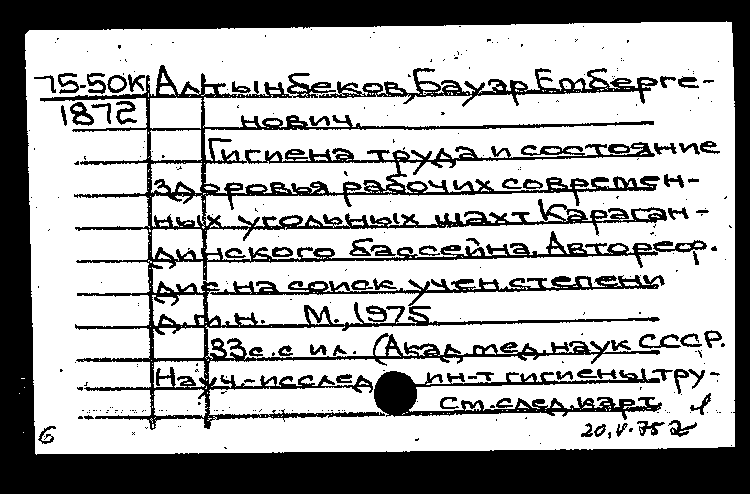 75-50К Алтынбеков, Бауэр Емберге-
1872 нович.
Гигиена труда и состояние
здоровья рабочих современ-
ных угольных шахт Караган-
динского бассейна. Автореф.
дис. на соиск. учен. степени
д.м.н. М., 1975
33с. с ил. (Акад. мед. наук СССР.
Науч.-исслед ин-т гигиены тру-
См. след. карт
6 20.V.75